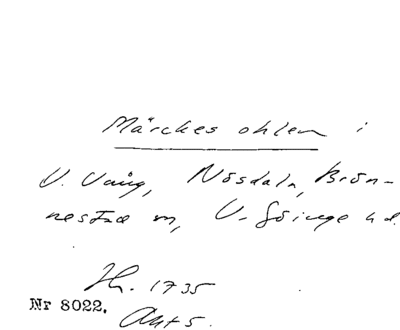 Märckes ohlen i
V. Vång, Nösdala, Brön-
nestad m, V. Göinge hd.
Hr. 1735
Nr 8022.
Akt 5.